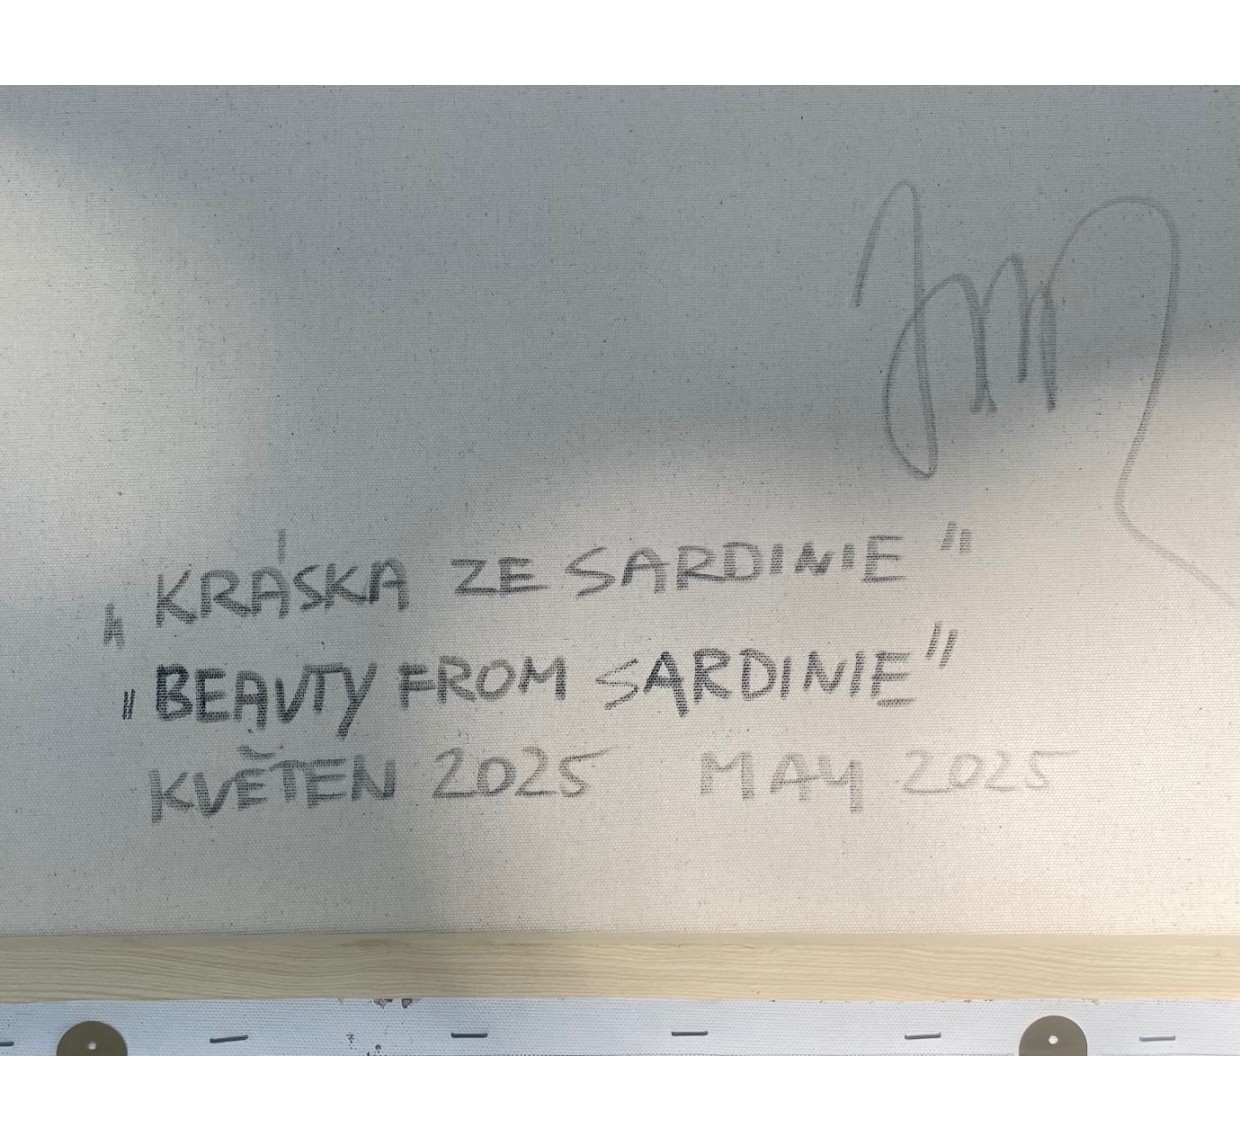 „KRÁSKA ZE SARDINIE"
„BEAUTY FROM SARDINIE"
KVĚTEN 2025 MAY 2025